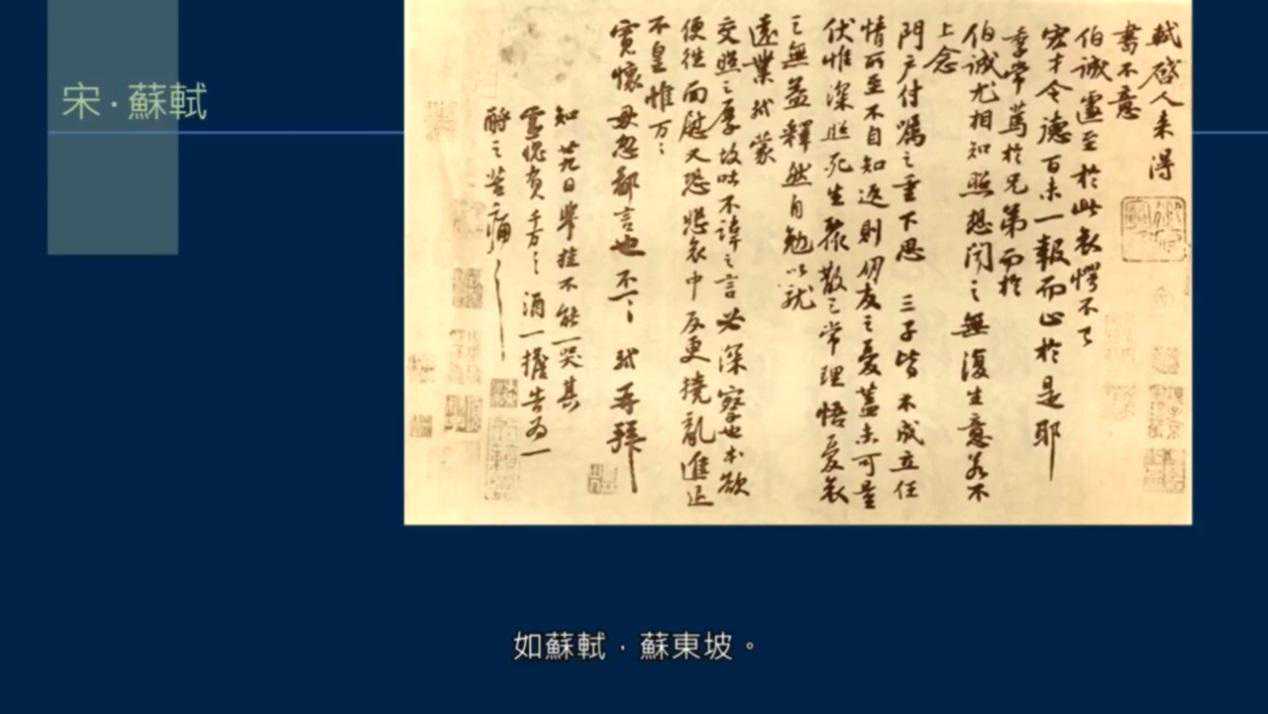 宋·蘇軾
軾啓人來得
書不意
伯誠遽至於此哀愕不已
宏才令德百未一報而止於是耶
季常篤於兄弟而於
伯誠尤相知照想聞之無復生意若不
上念
門戶付囑之重下思三子皆未成立任
情所至不自知返則朋友之憂蓋未可量
伏惟深照死生聚散之常理悟憂哀
之無益釋然自勉以就
遠業軾蒙
交照之厚故吐不諱之言必深察也本欲
便往面慰又恐悲哀中反更撓亂進退
不皇惟万万
寬懷毋忽鄙言也不一一軾再拜
知廿九日舉挂不能一哭其
靈愧負千万千万酒一擔告為一
酹之苦痛苦痛
如蘇軾·蘇東坡。